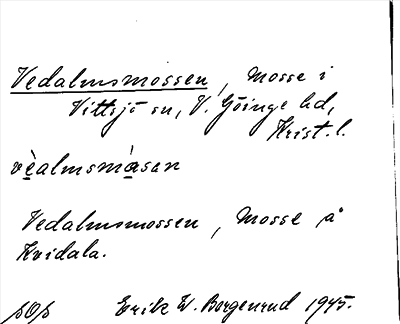 Vedalmsmossen, Mosse i
Vittsjö sn, V. Göinge hd,
Krist. l.
vèalmsmåsan
Vedalmsmossen, Mosse å
Kvidala.
Erik W. Borgenrud 1945.